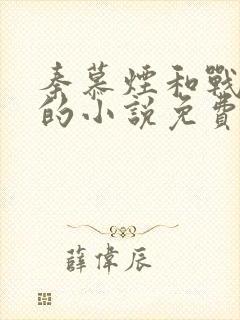 秦慕煙和戰
的小說免費
薛偉辰